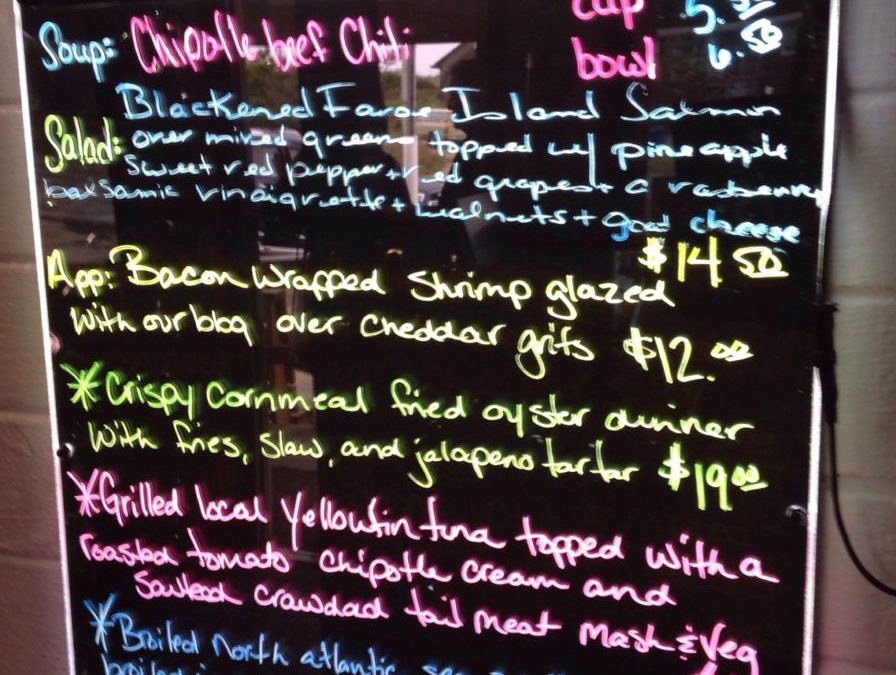 Soup: Chipotle beef Chili cup 5.
bowl 6.50
Blackened Faroe Island Salmon
Salad: over mixed greens topped w/ pineapple
sweet red pepper + red grapes + a rasberry
balsamic vinaigrette + walnuts + goat cheese
$14 50
App: Bacon wrapped Shrimp glazed
with our bbq over cheddar grits $12.00
*Crispy Cornmeal fried oyster dinner
with fries, slaw, and jalapeno tartar $19 00
*Grilled local Yellowfin tuna topped with a
roasted tomato chipotle cream and
Sauteed crawdad tail meat mash & veg
*Broiled North atlantic
broiled